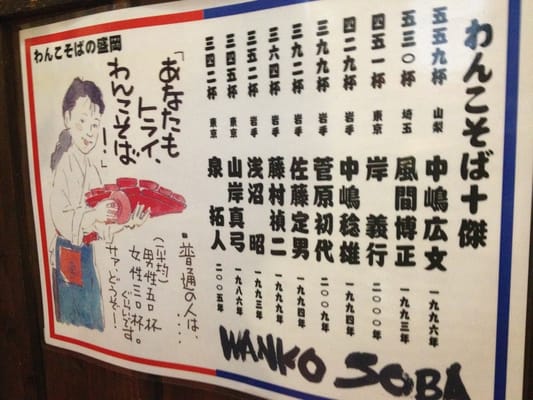 わんこそば十傑
五五九杯 山梨 中嶋広文 一九九六年
五三〇杯 埼玉 風間博正 一九九三年
四五一杯 東京 岸 義行 二〇〇〇年
四二九杯 岩手 中嶋稔雄 一九九四年
三九九杯 岩手 菅原初代 二〇〇九年
三九二杯 岩手 佐藤定男 一九九四年
三六四杯 岩手 藤村禎二 一九九九年
三五二杯 岩手 浅沼 昭 一九九三年
三四五杯 東京 山岸真弓 一九八六年
三四二杯 東京 泉 拓人 二〇〇五年
WANKO SOBA
わんこそばの盛岡
「あなたも
トライ、
わんこそば
!」
■普通の人は、・・・
(平均)
男性五〇杯
女性三〇杯。
ぐらいです
サア、どうぞー!